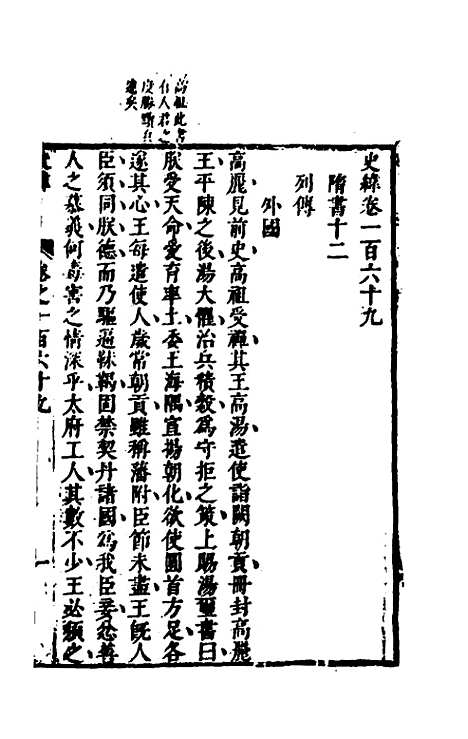 史緯卷一百六十九
隋書十二
列傳
外國
高麗見前史高祖受禪其王高湯遣使詣闕朝貢冊封高麗
王平陳之後湯大懼治兵積穀為守拒之策上賜湯璽書曰
朕受天命愛育率土委王海隅宣揚朝化欲使圓首方足各
遂其心王每遣使人歲常朝貢雖稱藩附臣節未盡王旣人
臣須同朕德而乃驅逼靺鞨固禁契丹諸國為我臣妾忿善
人之慕義何毒害之情深乎太府工人其數不少王必須之
高祖此書
有人君之
度勝
遠矣
卷之一百六十九
一